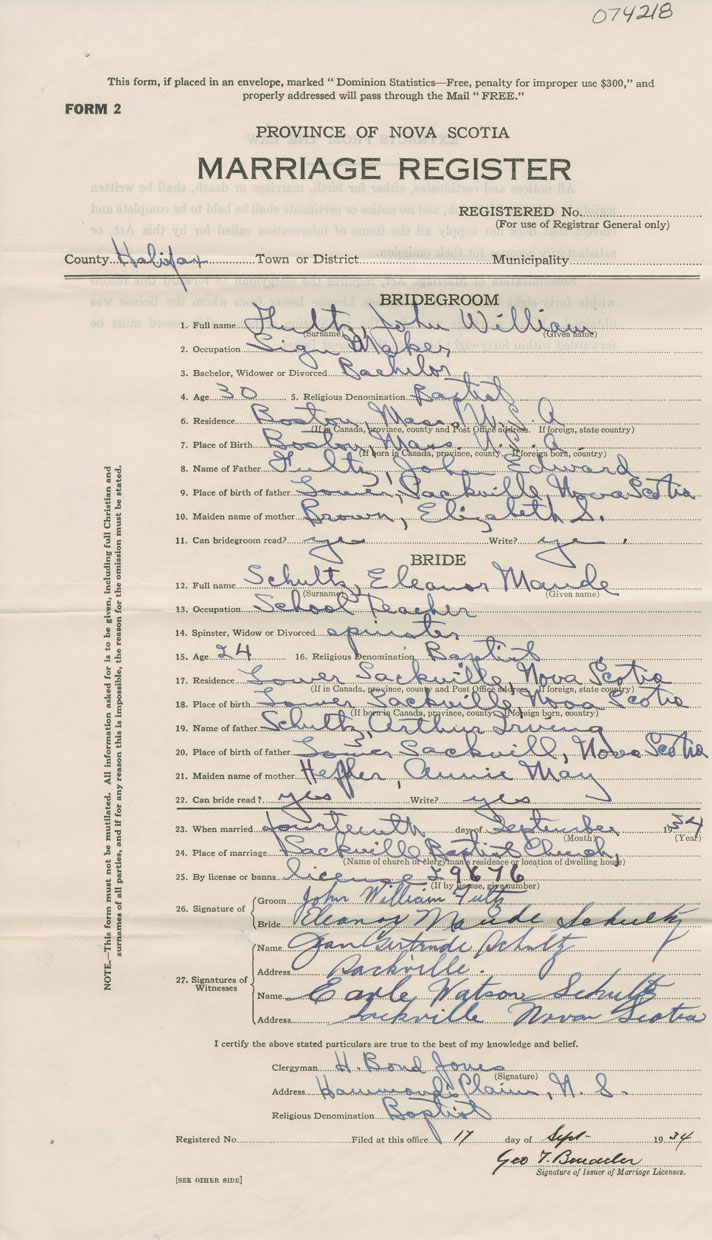 074218
This form, if placed in an envelope, marked “ Dominion Statistics—Free, penalty for improper use $300,” and
properly addressed will pass through the Mail “ FREE.”
FORM 2
PROVINCE OF NOVA SCOTIA
MARRIAGE REGISTER
REGISTERED No.
(For use of Registrar General only)
County Halifax Town or District Municipality
BRIDEGROOM
1. Full name Fultz, John William
(Surname) (Given name)
2. Occupation Sign Maker
3. Bachelor, Widower or Divorced Bachelor
4. Age 30 5. Religious Denomination Baptist
6. Residence Boston, Mass, U.S.A
(If in Canada, province, county and Post Office address. If foreign, state country)
7. Place of Birth Boston, Mass. U.S.A.
(If born in Canada, province, county. If foreign born, country)
8. Name of Father Fultz, John Edward
9. Place of birth of father Lower, Sackville, Nova Scotia
10. Maiden name of mother Brown, Elizabeth S.
11. Can bridegroom read? yes Write? yes.
BRIDE
12. Full name Schultz, Eleanor Maude
(Surname) (Given name)
13. Occupation School Teacher
14. Spinster, Widow or Divorced spinster
15. Age 24 16. Religious Denomination Baptist
17. Residence Lower Sackville, Nova Scotia
(If in Canada, province, county and Post Office address. If foreign, state country)
18. Place of birth Lower Sackville, Nova Scotia
(If born in Canada, province, county. If foreign born, country)
19. Name of father Schultz, Arthur Irving
20. Place of birth of father Lower Sackvill, Nova Scotia
21. Maiden name of mother Hefler, Annie May
22. Can bride read? yes Write? yes
23. When married fourteenth day of September 1934
(Month) (Year)
24. Place of marriage Sackville Baptist Church,
(Name of church or clergyman's residence or location of dwelling house)
25. By license or banns license 29676
(If by license, give number)
26. Signature of
Groom John William Fultz
Bride Eleanor Maude Schultz
27. Signatures of Witnesses
Name Jean Gertrude Schultz
Address Sackville.
Name Earle Watson Schultz
Address Sackville Nova Scotia
I certify the above stated particulars are true to the best of my knowledge and belief.
Clergyman H. Bond Jones
(Signature)
Address Hammonds Plains, N.S.
Religious Denomination Baptist
Registered No. Filed at this office 17 day of Sept- 1934
Geo T.
Signature of Issuer of Marriage Licenses.
[SEE OTHER SIDE]
NOTE.—This form must not be mutilated. All information asked for is to be given, including full Christian and
surnames of all parties, and if for any reason this is impossible, the reason for the omission must be stated.